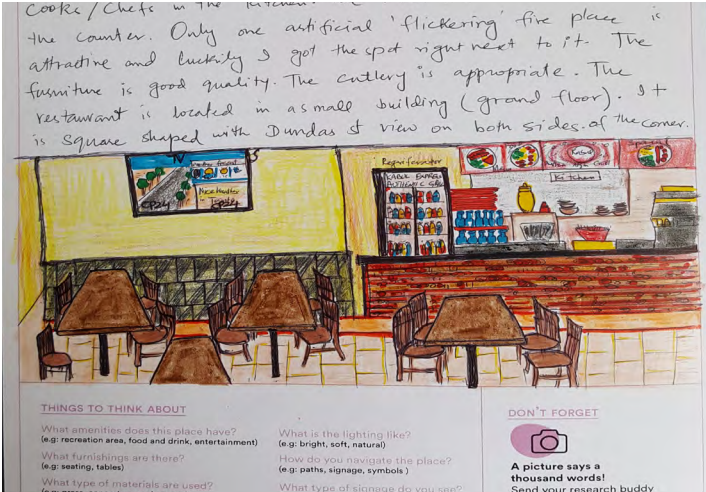 Cooks/Chefs in the kitchen.
the counter. Only one artificial 'flickering' fire place is
attractive and luckily I got the spot right next to it. The
furniture is good quality. The cutlery is appropriate. The
restaurant is located in a small building (ground floor). It
is square shaped with Dundas St view on both sides of the corner.
TV
CP24
Refrigerator
KABUL EXPRESS
AUTHENTIC
Kitchen
THINGS TO THINK ABOUT
What amenities does this place have?
(e.g: recreation area, food and drink, entertainment)
What furnishings are there?
(e.g: seating, tables)
What type of materials are used?
What is the lighting like?
(e.g: bright, soft, natural)
How do you navigate the place?
(e.g: paths, signage, symbols )
What type of signage do you see?
DON'T FORGET
A picture says a
thousand words!
Send your research buddy